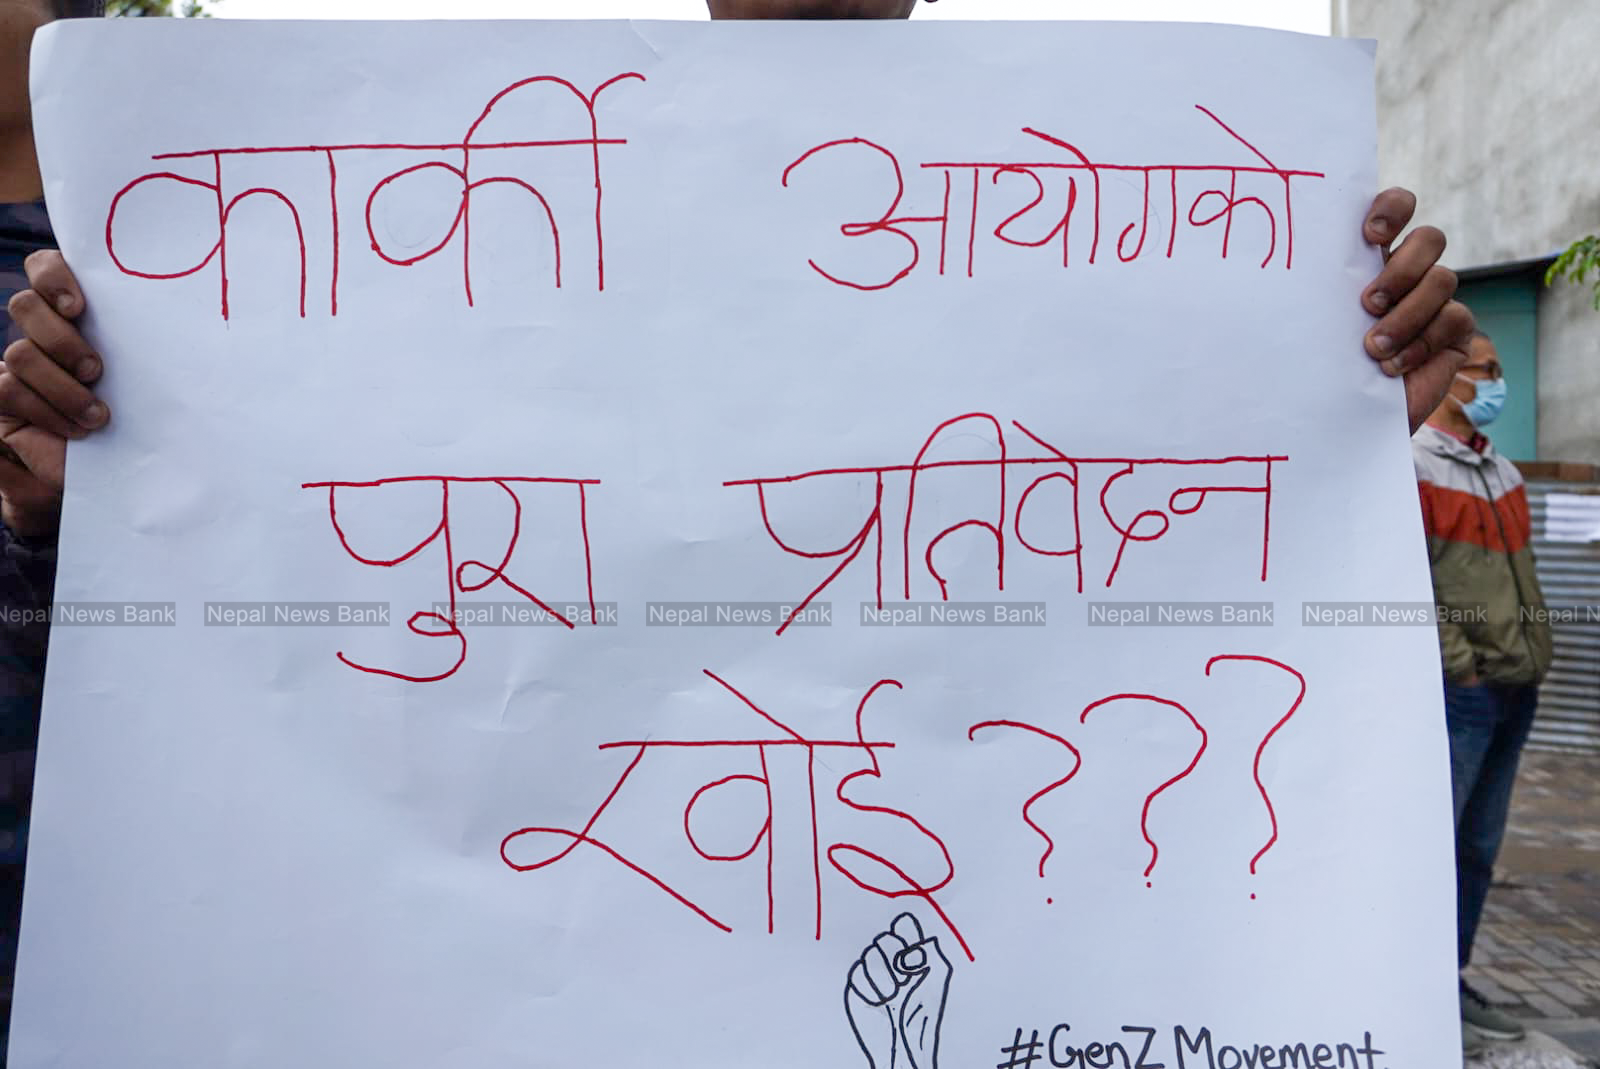 कार्की आयोगको
पुरा प्रतिवेदन
Nepal News Bank Nepal News Bank Nepal News Bank Nepal News Bank Nepal News Bank Nepal News Bank Nepal News Bank Nepal N
खोई ???
#GenZ Movement